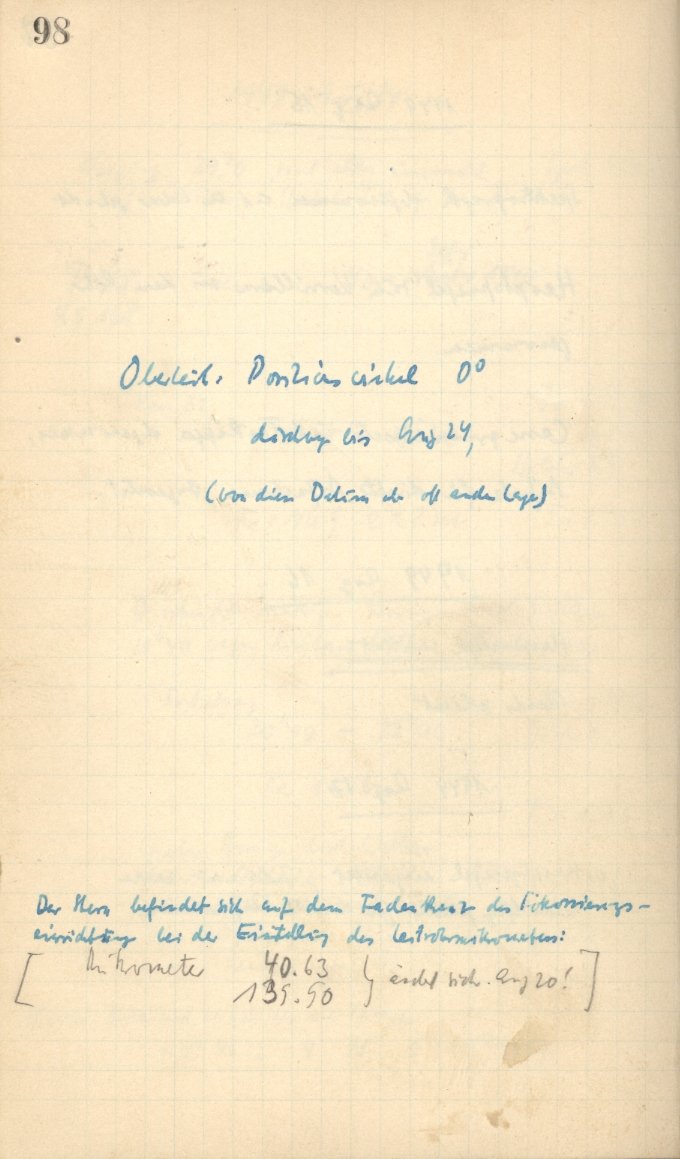 98
Positionswinkel 0°
bis Aug 24,
(von diesem Datum ab oft andere Lage)
Der Stern befindet sich auf dem Fadenkreuz der Fokussierungs-
einrichtung bei der Einstellung des Leitrohrmikrometers:
[ Mikrometer 40.63 } ändert sich. Aug 20! ]
139.90